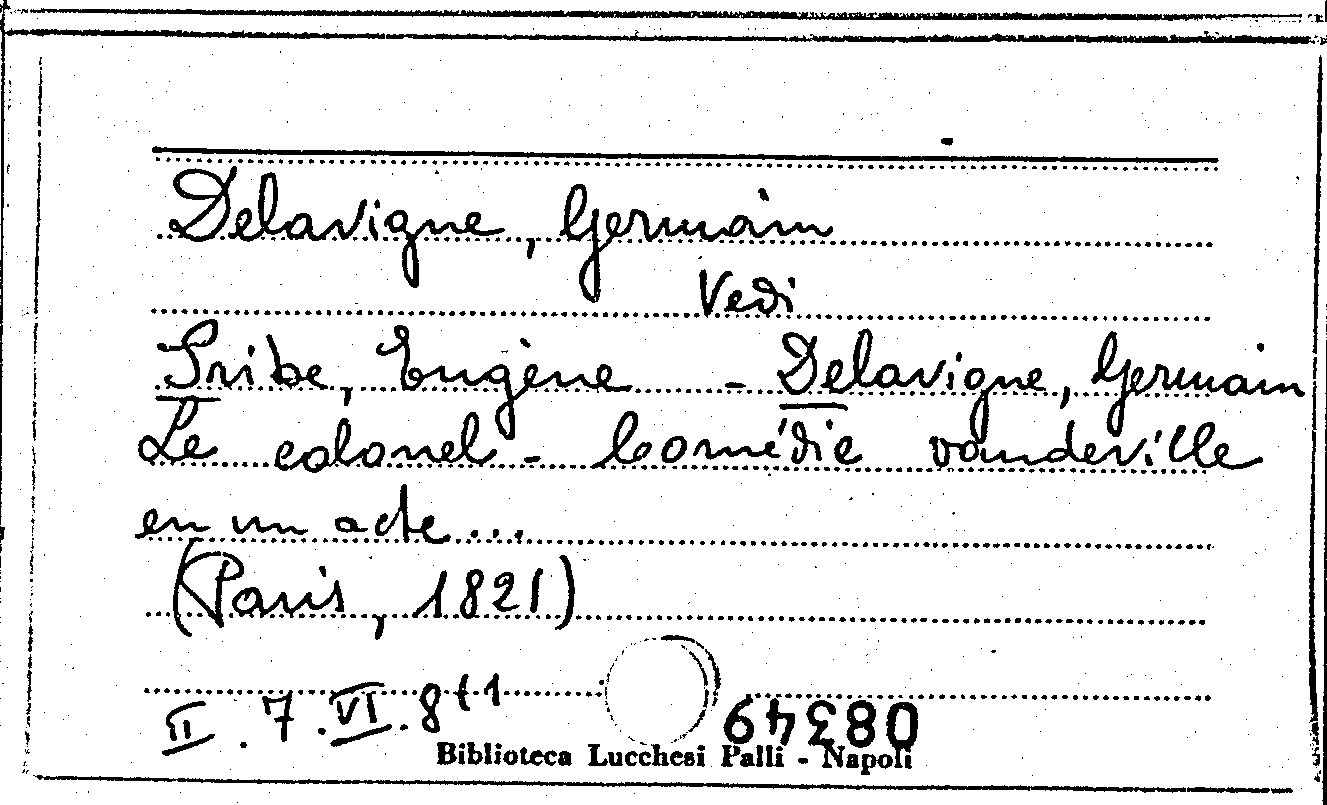 Delavigne, Germain
Vedi
Scribe, Eugène - Delavigne, Germain
Le colonel - Comédie vaudeville
en un acte...
(Paris, 1821)
II. 7. VI. 8(1
08349
Biblioteca Lucchesi Palli - Napoli